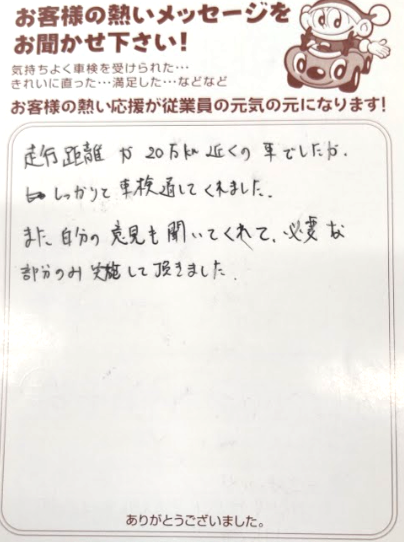 お客様の熱いメッセージを
お聞かせ下さい!
気持ちよく車検を受けられた…
きれいに直った…満足した…などなど
お客様の熱い応援が従業員の元気の元になります!
走行距離が20万km近くの車でしたが、
しっかりと車検通してくれました。
また、自分の意見も聞いてくれて、必要な
部分のみ実施して頂きました。
ありがとうございました。